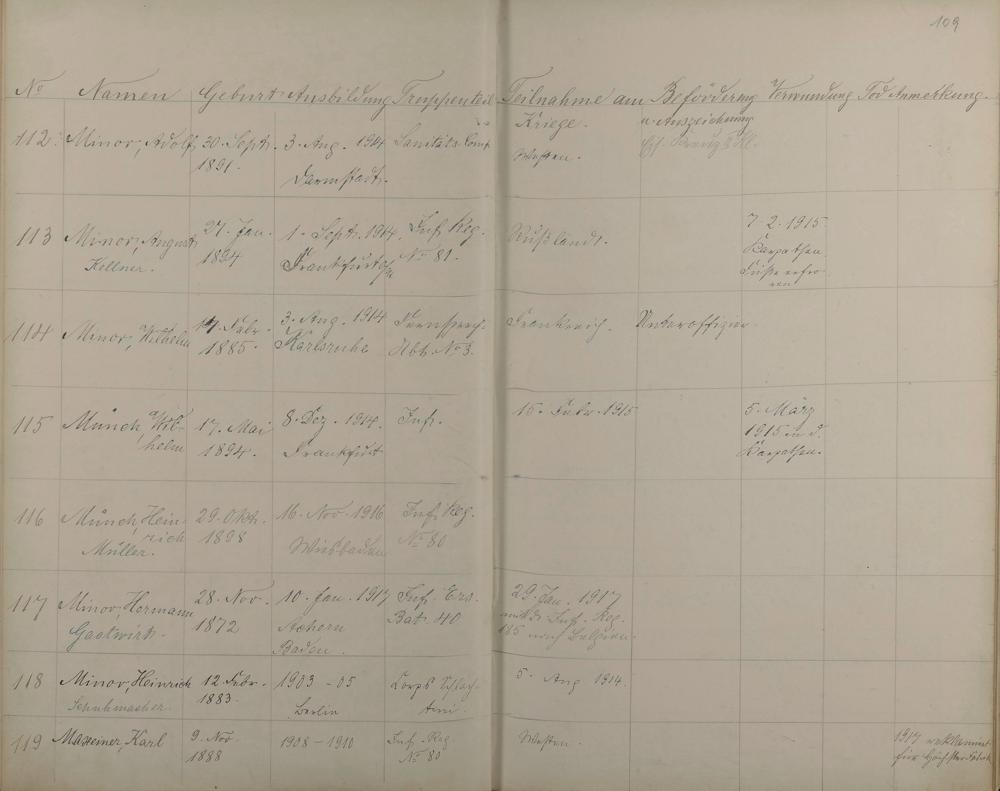 109
No Namen Geburt Ausbildung Truppenteil Teilnahme am Kriege. Beförderung u. Auszeichnung Verwundung Tod Anmerkung
112 Minor, Adolf 30. Sept. 3. Aug. 1914 Sanitäts Comp.
1891. Darmstadt. Westen.
113 Minor, August 27. Jan. 1. Sept. 1914 Inf. Reg. Rußland. 7. 2. 1915
Kellner. 1894 Frankfurt a/M No 81. Karpathen
Füße erfro-
ren
114 Minor, Wilhelm 17. Febr. 3. Aug. 1914 Fernsprech. Frankreich. Unteroffizier.
1885. Karlsruhe Abt. No 3.
115 Münch, Wil- 17. Mai 8. Dez. 1914. Inf. 15. Febr. 1915 5. März
helm 1894. Frankfurt 1915 in d.
Karpathen.
116 Münch, Hein- 29. Okt. 16. Nov. 1916 Inf. Reg.
rich 1898 Wiesbaden No 80
Müller.
117 Minor, Hermann 28. Nov. 10. Jan. 1917 Inf. Ers. 29. Jan. 1917
Gastwirt. 1872 Achern Bat. 40 Inf. Reg.
Baden. 185 nach Belgien.
118 Minor, Heinrich 12. Febr. 1903 - 05 Corps Schläch- 5. Aug. 1914.
Schuhmacher. 1883. Berlin
119 Maxeiner, Karl 9. Nov. 1908 - 1910 Inf. Reg. Westen. 1917 reklamiert
1888 No 80 für Höchster Fabrik